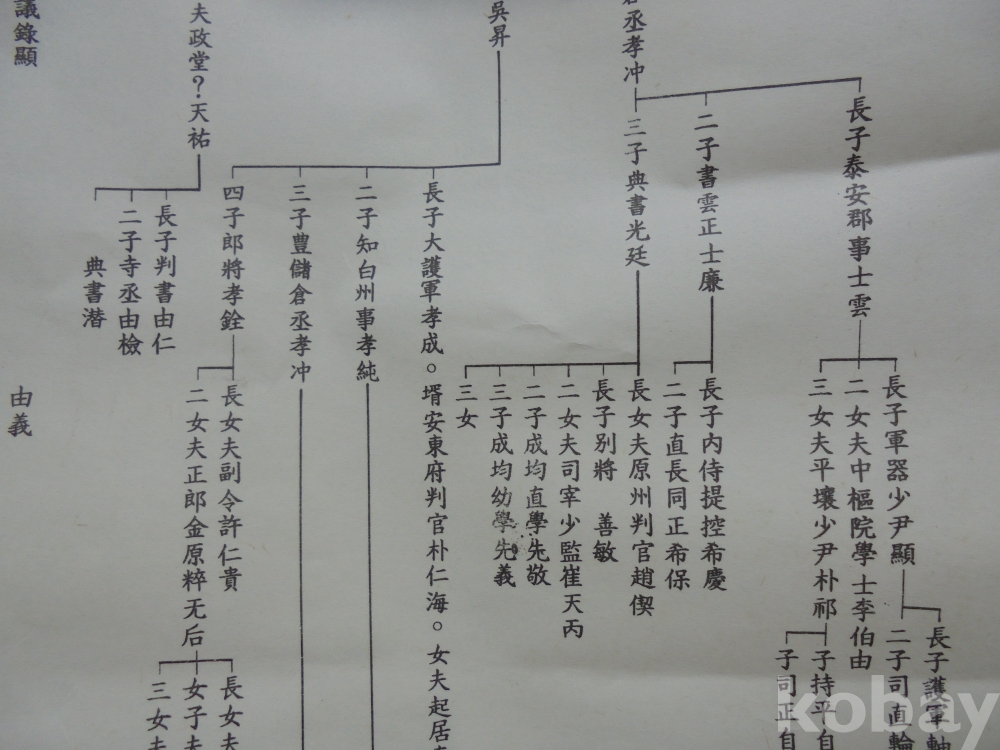 倉丞孝冲
長子泰安郡事士雲
二子書雲正士廉
三子典書光廷
長子軍器少尹顯
二女夫中樞院學士李伯由
三女夫平壤少尹朴祁
長子護軍軸
二子司直輪
子持平自
子司正自
長子內侍提控希慶
二子直長同正希保
長女夫原州判官趙偰
長子別將 善敏
二女夫司宰少監崔天丙
二子成均直學先敬
三子成均幼學先義
三女
吳昇
長子大護軍孝成。壻安東府判官朴仁海。女夫起居
二子知白州事孝純
三子豐儲倉丞孝冲
四子郎將孝銓
長女夫副令許仁貴
二女夫正郎金原粹无后
長女夫
女子夫
三女夫
夫政堂?天祐
長子判書由仁
二子寺丞由檢
典書潜
議錄顯
由義
kobay